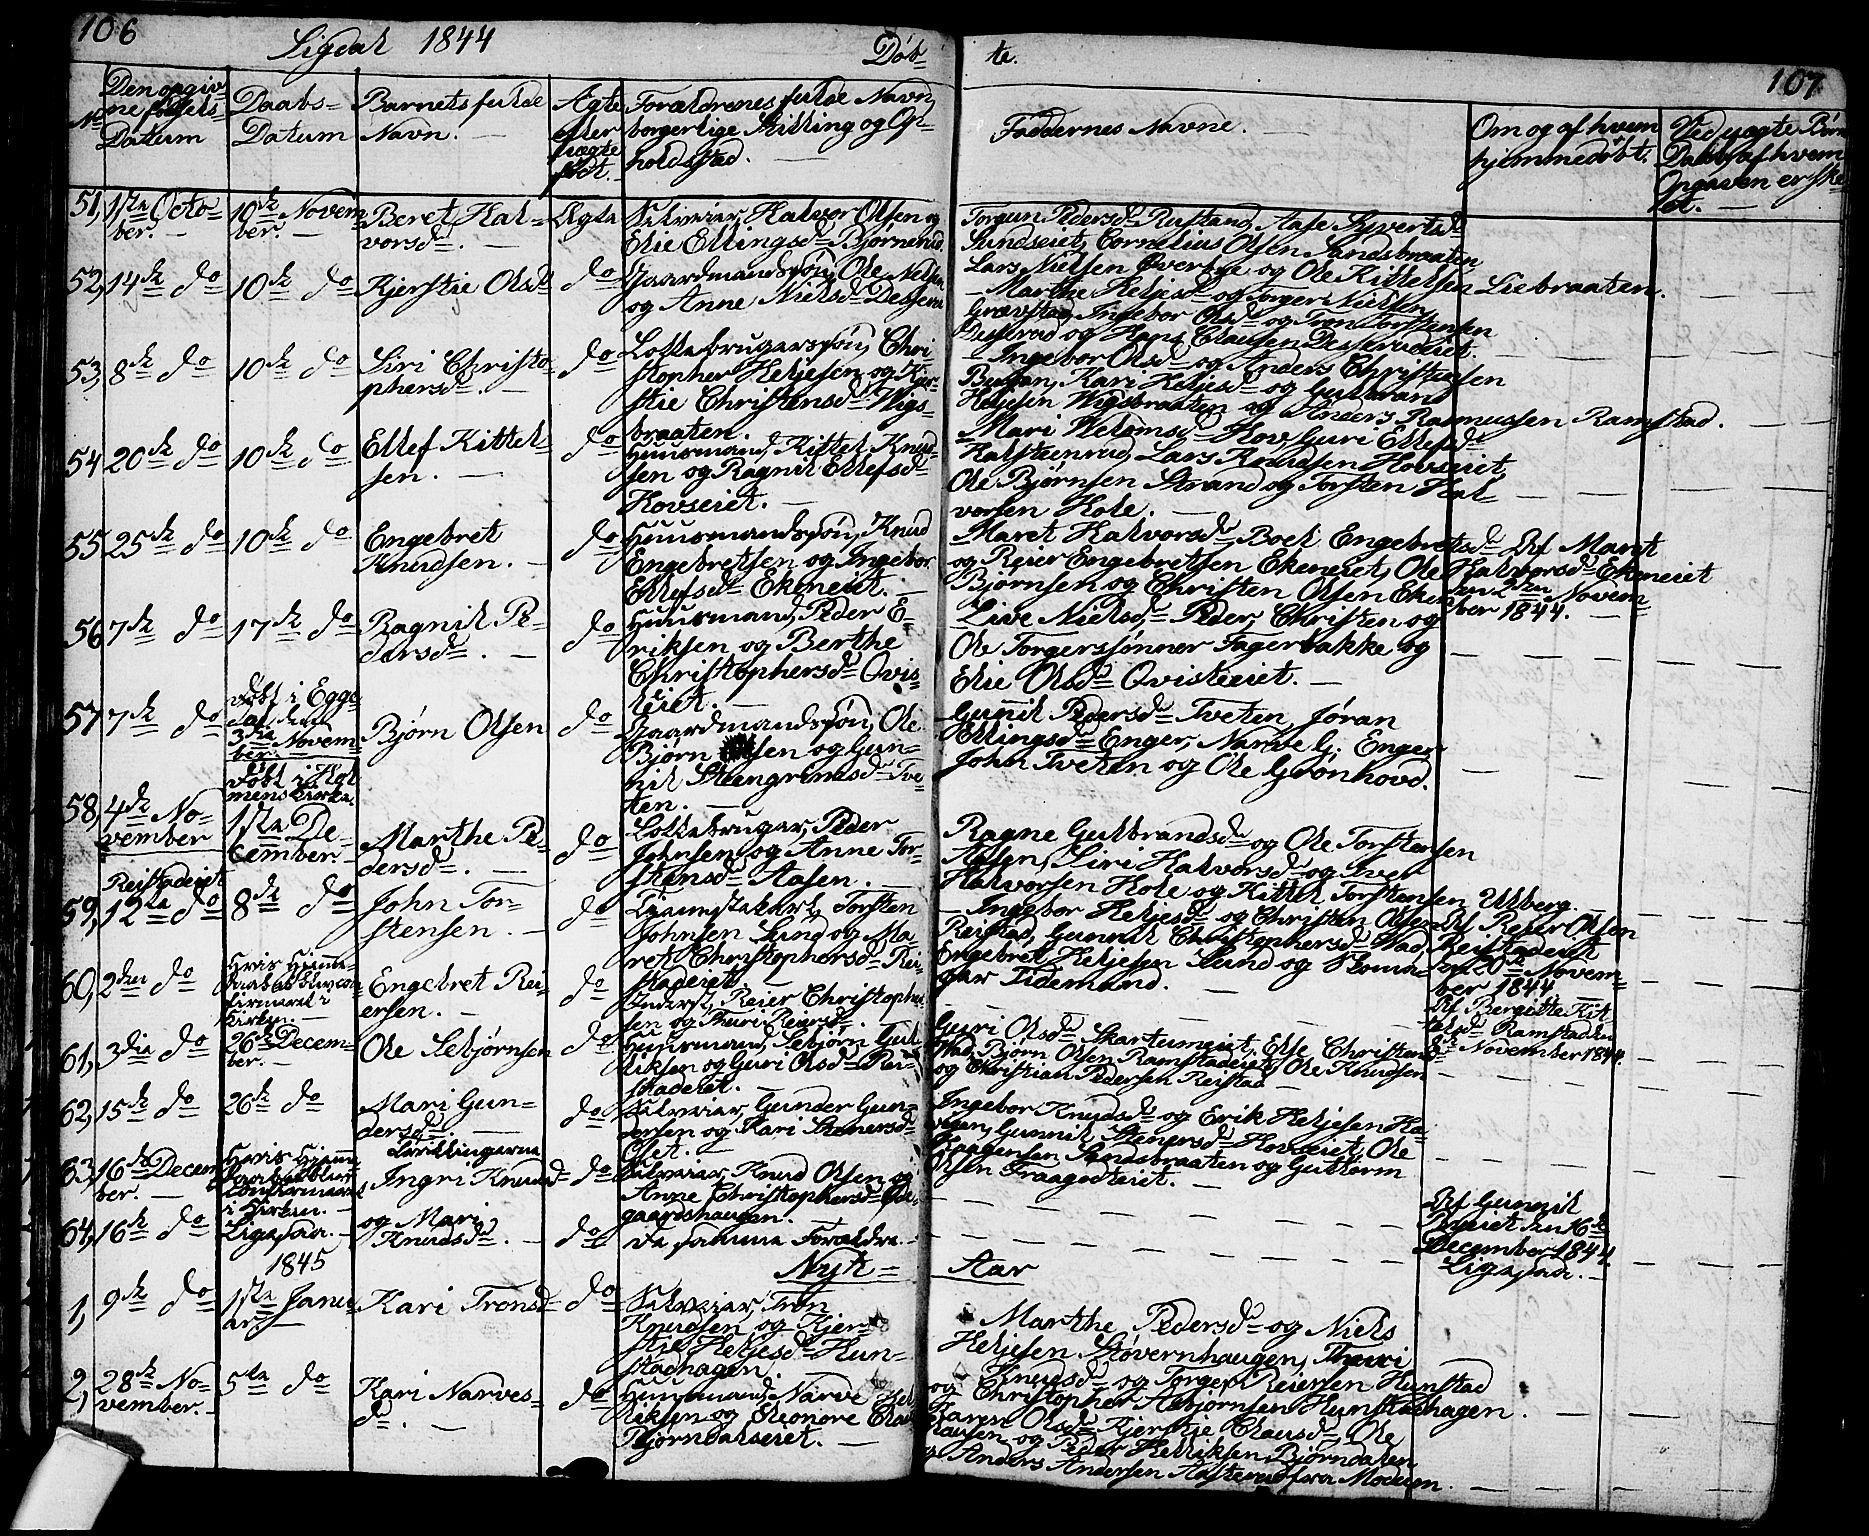 106
Sigdal 1844
Døb-
te.
107
No
Den opgiv
ne fødsels
Datum
Daabs-
Datum
Barnets fulde
Navn.
Ægte
eller
uægte
født.
Forældrenes fulde Navn,
borgerlige Stilling og Op-
holdssted.
Faddernes Navne.
Om og af hvem
hjemmedøbt.
Ved uægte Børn
Daab, af hvem
Opgaven er ske
et.
51, 1ste Octo-
ber.
10de Novem
ber.
Beret Hal-
vorsd.
Ægte
Selveier, Halvor Olsen og
Elie Ellingsd Bjørnerud
Torgun Pedersd Rustand, Aase Syvertsd
Sundseiet, Cornelius Olsen Sandsbraaten
Lars Nielsen Øverbye og Ole Kittelsen Liebraaten.
52, 14de do
10de do
Kjerstie Olsd
do
Gaardmandssøn, Ole Nelsen
og Anne Nielsd Desserud
Marthe Heljesd og Torger Nielsen
Grævstad, Ingebor Olsd og Tron Torstensen
Desserud og Hans Clausen Desserudeiet.
53, 8de do
10de do
Siri Christo-
phersd.
do
Lottebrugerssøn, Chri-
stopher Heljesen og Kjer-
stie Christensd Wigs-
braaten.
Ingebor Olsd og Anders Christensen
Buxan, Kari Heljesd og Gulbrand
Heljesen Wigsbraaten og Anders Rasmussen Ramstad.
54 20de do
10de do
Ellef Kittel-
sen.
do
Huusmand, Kittel Knud-
sen og Ragnil Ellefsd
Hovseiet.
Mari Melomsd Hov, Guri Ellefsd
Halsteenrud, Lars Knudsen Hovseiet,
Ole Bjørnsen Strand og Torsten Hal-
vorsen Hole.
55 25de do
10de do
Engebret
Knudsen.
do
Huusmandssøn, Knud
Engebretsen og Ingebor
Ellefsd Ekeneiet.
Maret Halvorsd, Boel Engebretsd
og Reier Engebretsen Ekeneiet, Ole
Bjørnsen og Christen Olsen Eken
Af Maret
Halvorsd Ekeneiet
den 2den Novem-
ber 1844.
56 7de do
17de do
Ragnil Pe-
dersd.
do
Huusmand, Peder E-
riksen og Berthe
Christophersd Qvis-
teiet.
Live Nielsd, Peder, Christen og
Ole Torgerssønner Fagerbakke og
Elie Olsd Qvisteeiet.
57 7de do
Døbt i Egge
dal, den
3die Novem
ber.
Bjørn Olsen
do
Gaardmandssøn, Ole
Bjørn sen og Gun-
nil Steengrimsd Tve
ten.
Gunnil Pedersd Tveten, Jøran
Ellingsd Enger, Narve G. Enger
John Tveten og Ole Grønhovd.
58, 4de No-
vember
Døbt i Hol
mens Kirke,
1ste De-
cember.
Marthe Pe-
dersd.
do
Lottebruger, Peder
Johnsen og Anne Tor-
stensd Aasen.
Ragne Gulbrandsd og Ole Torstensen
Aasen, Siri Halvorsd og Iver
Halvorsen Hole og Kittel Torstensen Ulberg.
Reistadeiet
59, 12te do
8de do
John Tor-
stensen.
do
Tjenestekarl, Torsten
Johnsen Lund og Ma-
ret Christophersd Rei-
stadeiet.
Ingebor Heljesd og Christen Olsen
Reistad, Gunnil Christophersd Wad,
Engebret Heljesen Lund og
Tidemand.
Af Reier Olsen
Reistadeiet
den 20de Novem-
ber 1844
60, 2den do
Hvis Hjemme-
daab blev con-
firmeret i
Kirken.
Engebret Rei-
ersen.
do
Inderst, Reier Christopher
sen og Thuri Reiersd.
Af Bergitte Kit
telsd Ramstad den
8de November 1844.
61, 3die do
26de Decem-
ber.
Ole Sebjørnsen
do
Huusmand, Sebjørn Gul
liksen og Guri Olsd Rei-
stadeiet.
Guri Olsd Skartumeiet, Else Christensd
Wad, Bjørn Olsen Ramstadeiet, Ole Knudsen
og Christian Pedersen Reistad
62, 15de do
26de do
Mari Gun-
dersd.
do
Selveier, Gunder Gun-
dersen og Kari Stenersd
Olset.
Ingebor Knudsd og Erik Heljesen Ha-
vegen, Gunnil Stenersd Hovseiet, Ole
Haagensen Sandsbraaten og Guttorm
Olsen Fraagodteiet.
63, 16de Decem
ber.
Hvis Hjemme-
daab blev
confirmeret
i Kirken.
Tvillingerne
Ingri Knudsd
do
Selveier, Knud Olsen og
Anne Christophersd Øde-
gaardshaugen.
64, 16de do
Ligesaa.
og Mari
Knudsd.
do
de samme Forældre.
Af Gunnil
Byeiet den 16de
December 1844.
Ligesaa.
1845
Nyt
Aar
1, 9de do
1ste Janu
ar
Kari Tronsd
do
Selveier, Tron
Knudsen og Kjer-
stie Heljesd Hun-
stadhagen.
Marthe Pedersd og Niels
Heljesen Støvernhaugen, Thuri
Knudsd og Torger Reiersen Hunstad
og Christopher Asbjørnsen Hunstadhagen.
2, 28de No-
vember.
5te do
Kari Narves-
d.
do
Huusmand, Narve Hel
liksen og Eleonore Clau
Bjørndalseiet.
Karen Olsd, Kjerstie Clausd, Ole
Clausen og Peder Helliksen Bjørndalen
og Anders Andersen Aasterud fra Modum.